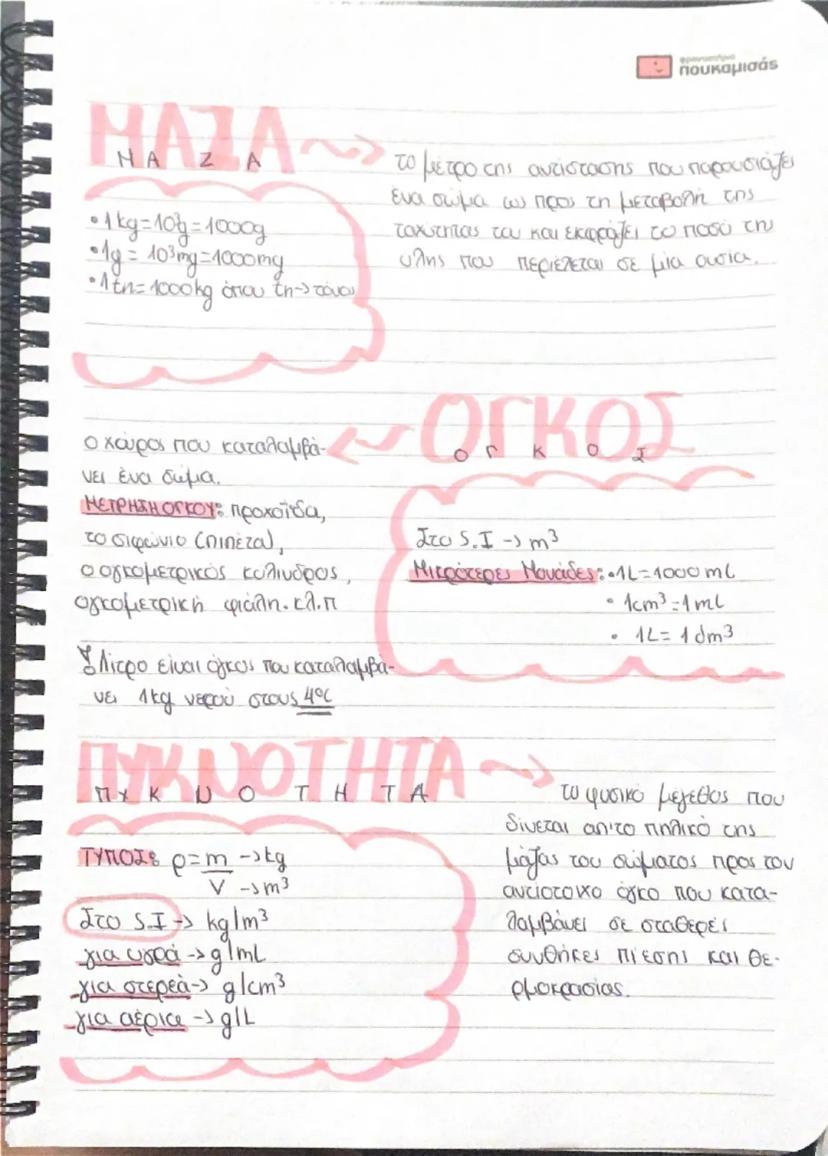 φροντιστήρια
πουκαμισάς
ΜΑΖΑ
ΜΑΖΑ
το μέτρο της αντίστασης που παρουσιάζει
ένα σώμα ως προς τη μεταβολή της
ταχύτητας του και εκφράζει το ποσό της
ύλης που περιέχεται σε μία ουσία.
• 1kg=10³g=1000g
• 1g = 10³mg=1000mg
• 1tn=1000kg όπου tn→τόνοι
ΟΓΚΟΣ
ΟΓΚΟΣ
ο χώρος που καταλαμβά-
νει ένα σώμα.
ΜΕΤΡΗΣΗ ΟΓΚΟΥ: προχοΐδα,
το σιφώνιο (πιπέτα),
ο ογκομετρικός κύλινδρος,
ογκομετρική φιάλη.κλ.π
Λίτρο είναι όγκος που καταλαμβά-
νει 1kg νερού στους 4°C
Στο S.I → m³
Μικρότερες Μονάδες: •1L=1000mL
• 1cm³=1mL
• 1L= 1dm³
ΠΥΚΝΟΤΗΤΑ
ΠΥΚΝΟΤΗΤΑ
το φυσικό μέγεθος που
δίνεται απ'το πηλίκο της
μάζας του σώματος προς τον
αντίστοιχο όγκο που κατα-
λαμβάνει σε σταθερές
συνθήκες πίεσης και θε-
ρμοκρασίας.
ΤΥΠΟΣ: ρ=m →kg
V →m³
Στο S.I → kg/m³
για υγρά → g/mL
για στερεά→ g/cm³
για αέρια → g/L